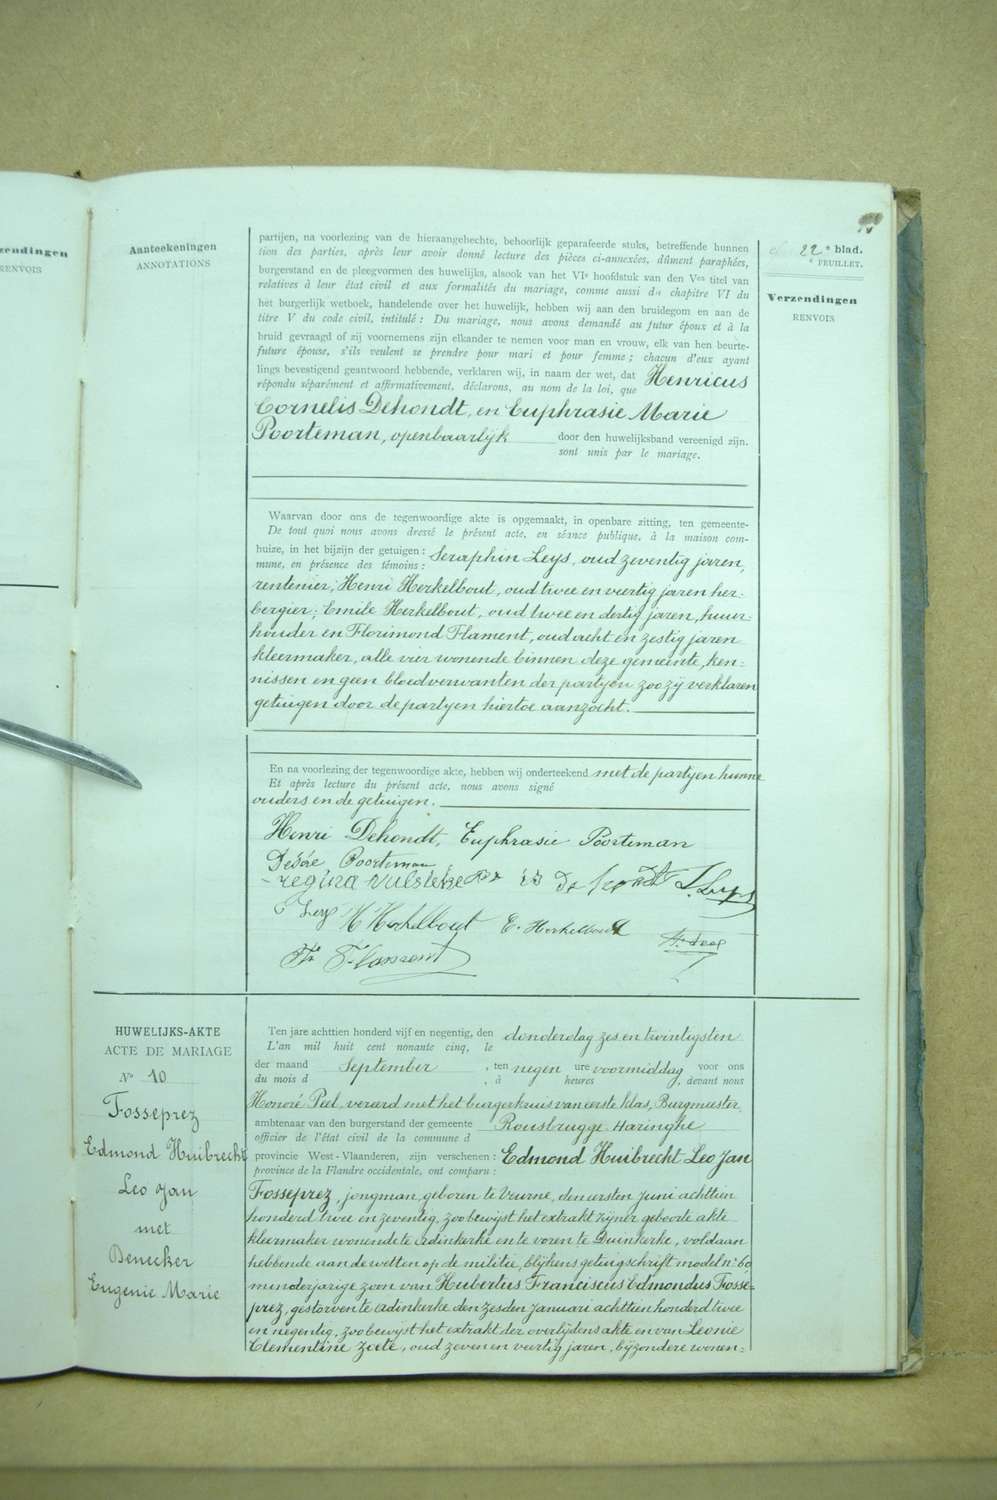 zendingen
RENVOIS
Aanteekeningen
ANNOTATIONS
22e blad.
e FEUILLET.
Verzendingen
RENVOIS
partijen, na voorlezing van de hieraangehechte, behoorlijk geparafeerde stuks, betreffende hunnen
tion des parties, après leur avoir donné lecture des pièces ci-annexées, dûment paraphées,
burgerstand en de pleegvormen des huwelijks, alsook van het VIe hoofdstuk van den Ven titel van
relatives à leur état civil et aux formalités du mariage, comme aussi du chapitre VI du
het burgerlijk wetboek, handelende over het huwelijk, hebben wij aan den bruidegom en aan de
titre V du code civil, intitulé : Du mariage, nous avons demandé au futur époux et à la
bruid gevraagd of zij voornemens zijn elkander te nemen voor man en vrouw, elk van hen beurte-
future épouse, s'ils veulent se prendre pour mari et pour femme ; chacun d'eux ayant
lings bevestigend geantwoord hebbende, verklaren wij, in naam der wet, dat Henricus
répondu séparément et affirmativement, déclarons, au nom de la loi, que
Cornelis Dehondt, en Euphrasie Marie
Poorteman, openbaarlijk door den huwelijksband vereenigd zijn.
sont unis par le mariage.
Waarvan door ons de tegenwoordige akte is opgemaakt, in openbare zitting, ten gemeente-
De tout quoi nous avons dressé le présent acte, en séance publique, à la maison com-
huize, in het bijzijn der getuigen : Seraphin Leys, oud zeventig jaren,
mune, en présence des témoins :
rentenier; Henri Herkelbout, oud twee en veertig jaren her-
bergier; Emile Herkelbout, oud twee en dertig jaren, huur-
houder en Florimond Flament, oud acht en zestig jaren
kleermaker, alle vier wonende binnen deze gemeinte, ken-
nissen en geen bloedverwanten der partyen zoo zij verklaren
getuigen door de partyen hiertoe aanzocht.
En na voorlezing der tegenwoordige akte, hebben wij onderteekend met de partyen hunne
Et après lecture du présent acte, nous avons signé
ouders en de getuigen.
Henri Dehondt, Euphrasie Poorteman
Désiré Poorteman
regina vulsteke De hondt S. Leys
Leys H Herkelbout E. Herkelbout
Fl Flament
HUWELIJKS-AKTE
ACTE DE MARIAGE
No 10
Fosseprez
Edmond Huibrecht
Leo Jan
met
Denecker
Eugenie Marie
Ten jare achttien honderd vijf en negentig, den donderdag zes en twintigsten
L'an mil huit cent nonante cinq, le
der maand September , ten negen ure voormiddag voor ons
du mois d , à heures , devant nous
Honoré Peel, vereerd met het burgerkruis van eerste klas, Burgmeester
ambtenaar van den burgerstand der gemeente Rousbrugge-Haringhe
officier de l'état civil de la commune d
provincie West-Vlaanderen, zijn verschenen : Edmond Huibrecht Leo Jan
province de la Flandre occidentale, ont comparu :
Fosseprez, jongman, geboren te Veurne, den eersten Juni achttien
honderd twee en zeventig, zoo bewijst het extrakt zijner geboorte akte
kleermaker wonende te Adinkerke en te voren te Duinkerke, voldaan
hebbende aan de wetten op de militie, blijkens getuigschrift model no 60
minderjarige zoon van Hubertus Franciscus Edmondus Fosse-
prez, gestorven te Adinkerke den zesden Januari achttien honderd twee
en negentig, zoo bewijst het extrakt der overlijdens akte en van Leonie
Clementine Zeete, oud zeven en veertig jaren, bijzondere wonen-